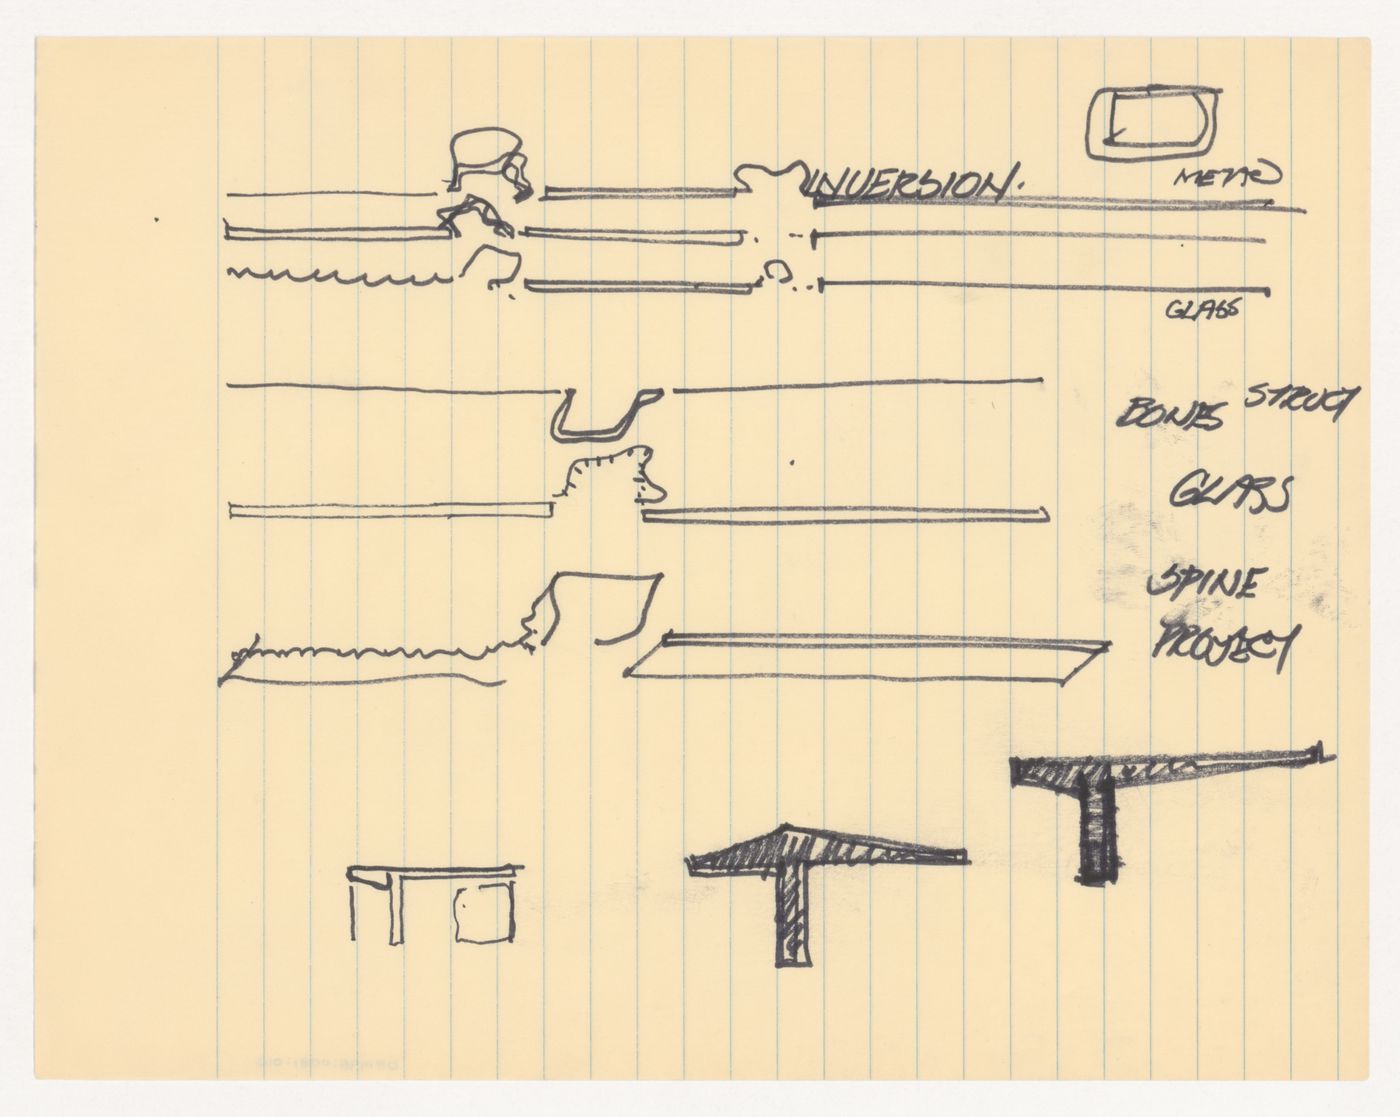 INVERSION.
METAL
GLASS
BONES STRUCT
GLASS
SPINE
PROJECT